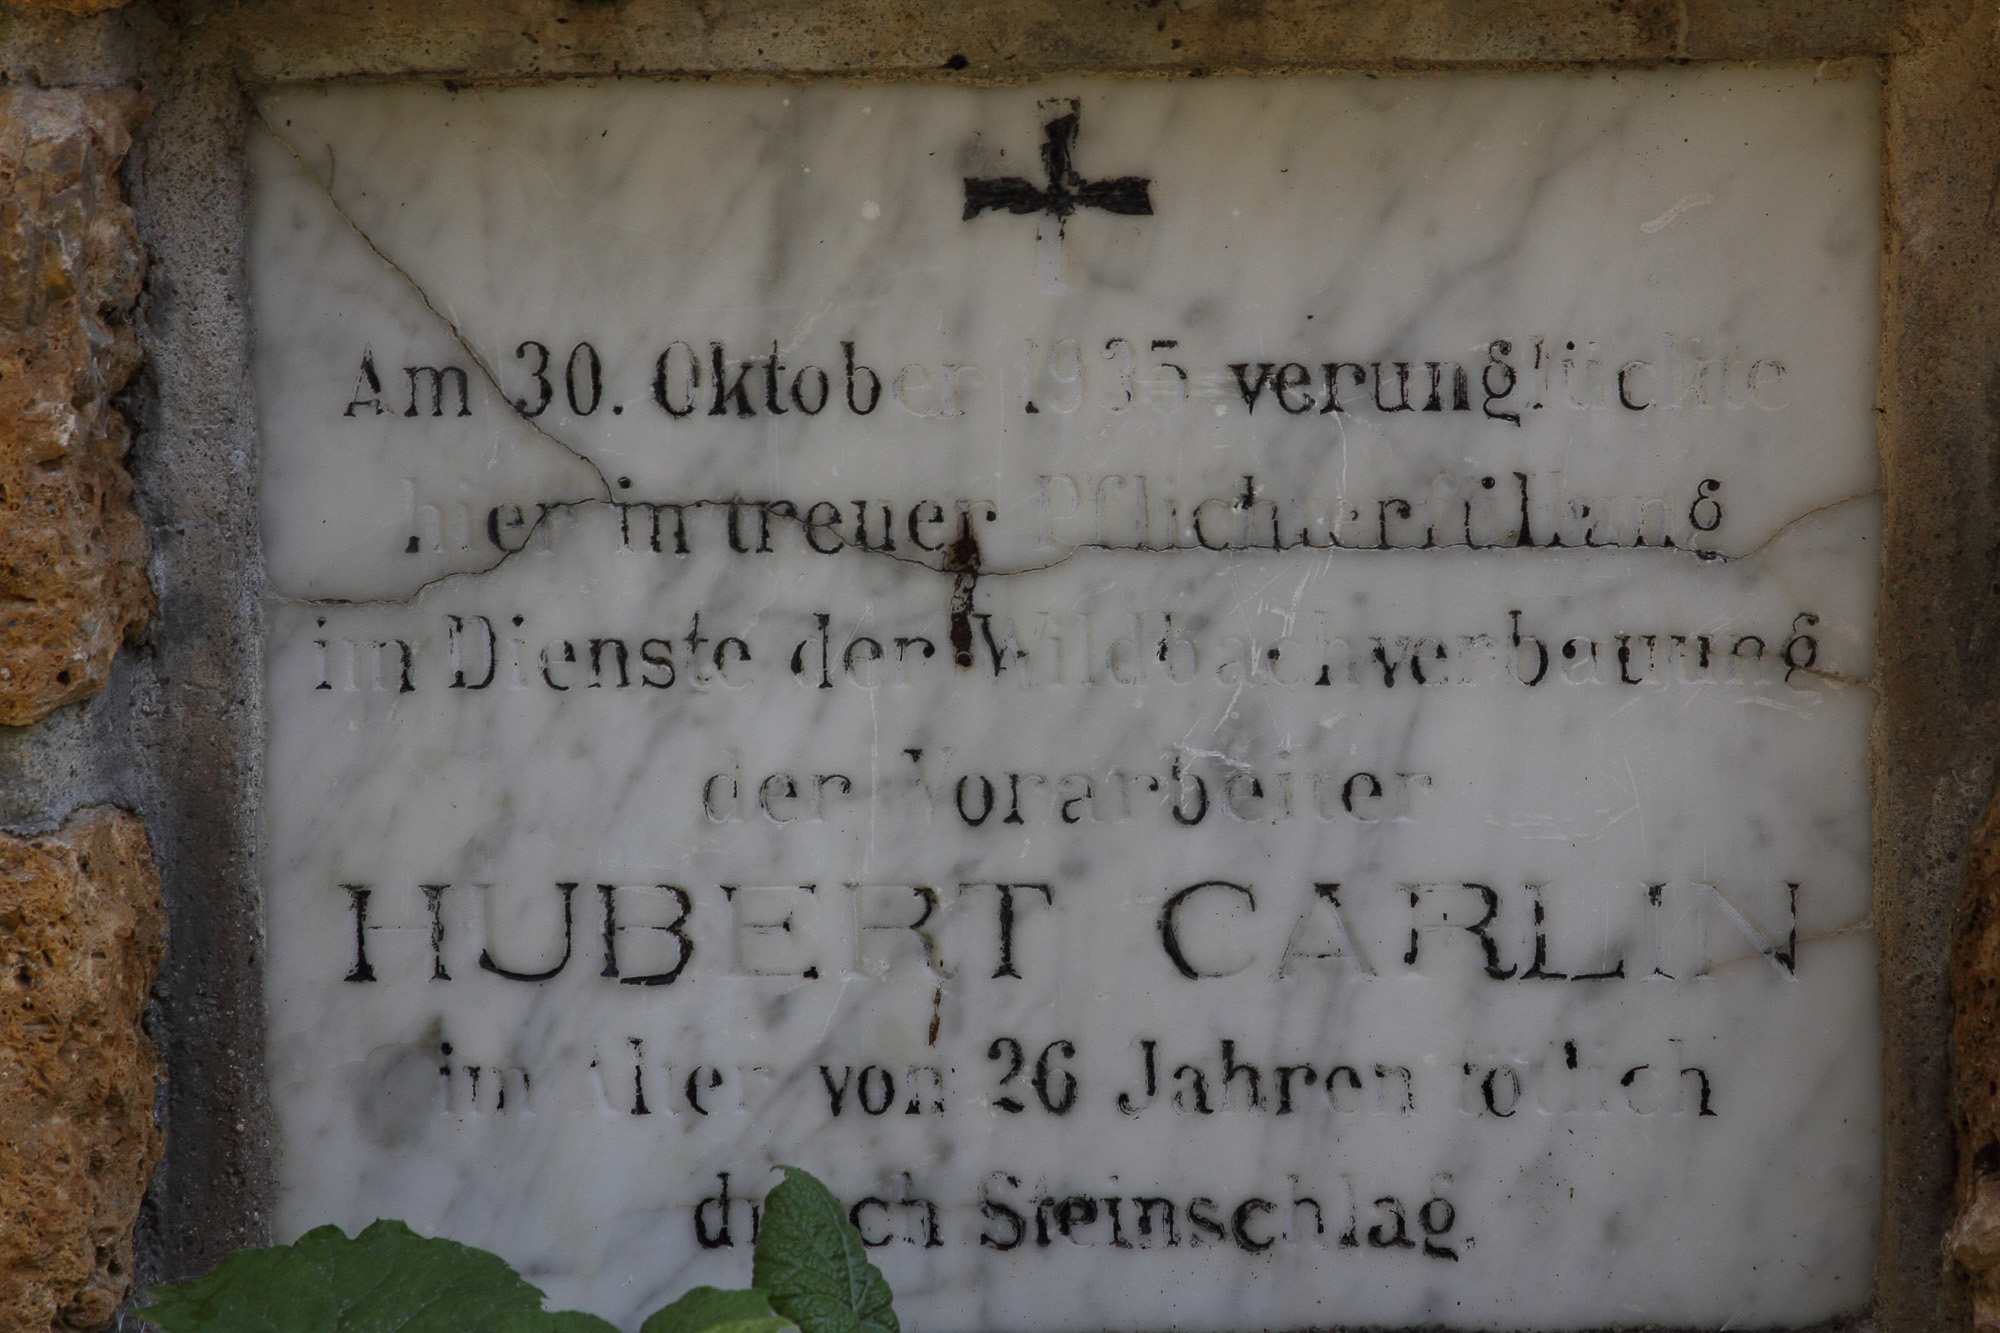 Am 30. Oktober 1935 verunglückte
hier in treuer Pflichterfüllung
im Dienste der Wildbachverbauung
der Vorarbeiter
HUBERT CARLIN
im Alter von 26 Jahren tödlich
durch Steinschlag.